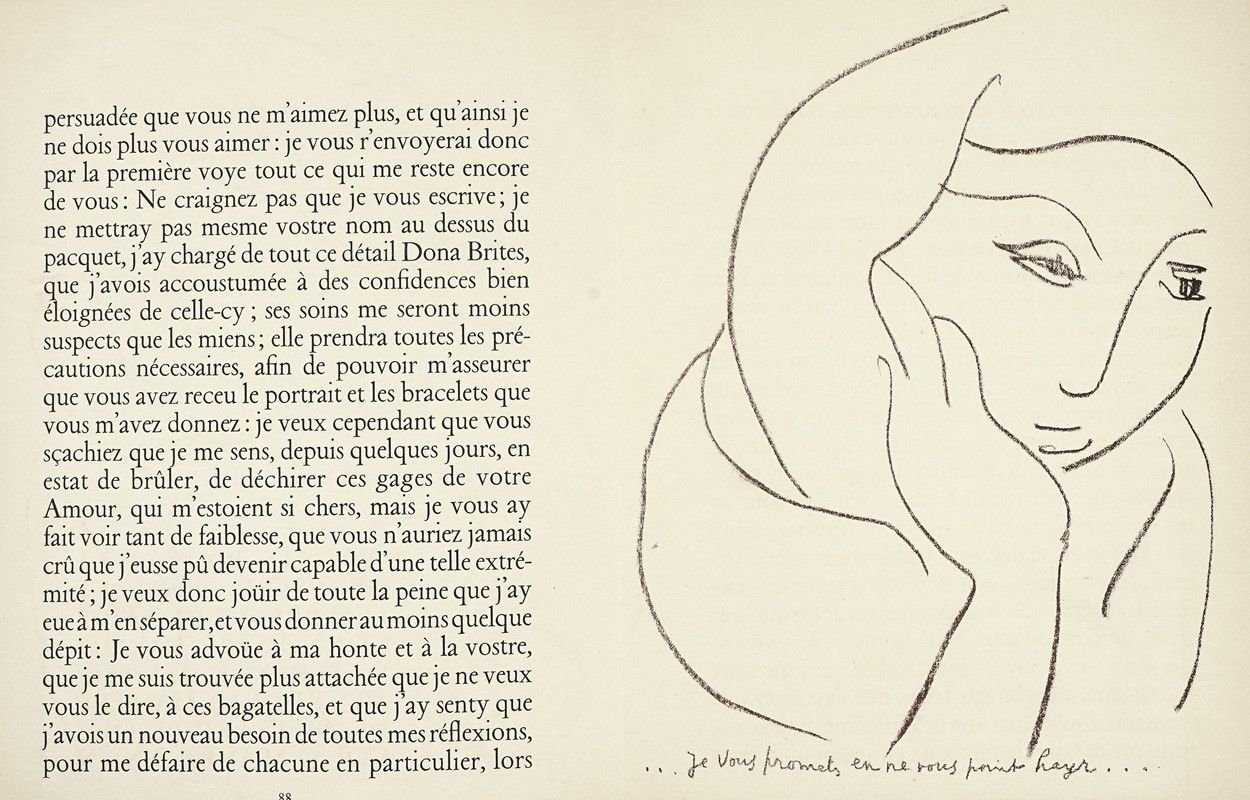 persuadée que vous ne m'aimez plus, et qu'ainsi je
ne dois plus vous aimer : je vous r'envoyerai donc
par la première voye tout ce qui me reste encore
de vous : Ne craignez pas que je vous escrive ; je
ne mettray pas mesme vostre nom au dessus du
pacquet, j'ay chargé de tout ce détail Dona Brites,
que j'avois accoustumée à des confidences bien
éloignées de celle-cy ; ses soins me seront moins
suspects que les miens ; elle prendra toutes les pré-
cautions nécessaires, afin de pouvoir m'asseurer
que vous avez receu le portrait et les bracelets que
vous m'avez donnez : je veux cependant que vous
sçachiez que je me sens, depuis quelques jours, en
estat de brûler, de déchirer ces gages de votre
Amour, qui m'estoient si chers, mais je vous ay
fait voir tant de faiblesse, que vous n'auriez jamais
crû que j'eusse pû devenir capable d'une telle extré-
mité ; je veux donc joüir de toute la peine que j'ay
eue à m'en séparer, et vous donner au moins quelque
dépit : Je vous advoüe à ma honte et à la vostre,
que je me suis trouvée plus attachée que je ne veux
vous le dire, à ces bagatelles, et que j'ay senty que
j'avois un nouveau besoin de toutes mes réflexions,
pour me défaire de chacune en particulier, lors
88
... je vous promets en ne vous point hayr....